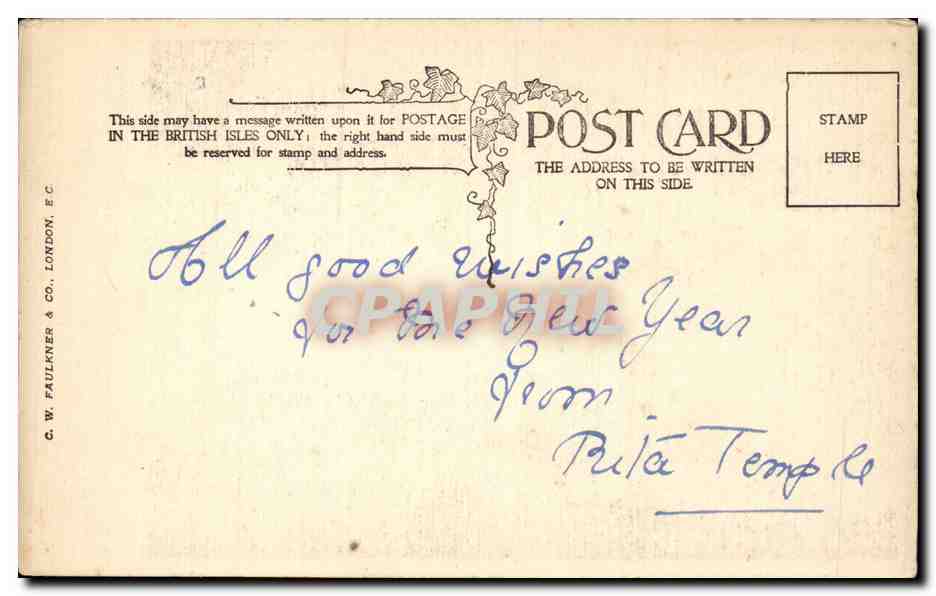 This side may have a message written upon it for POSTAGE
IN THE BRITISH ISLES ONLY; the right hand side must
be reserved for stamp and address.
POST CARD
THE ADDRESS TO BE WRITTEN
ON THIS SIDE.
STAMP
HERE
C. W. FAULKNER & CO., LONDON. E.C.
All good wishes
for the New Year
from
Rita Temple
CPAPHIL